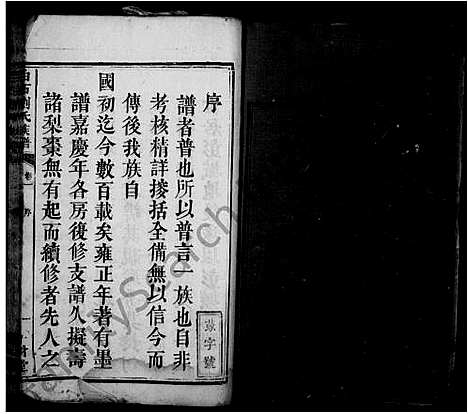 序
譜者普也所以普言一族也自非
考核精詳搜括全備無以信今而
傳後我族自
國初迄今數百載矣雍正年著有墨
譜嘉慶年各房後修支譜久擬壽
諸梨棗無有起而續修者先人之
字號
劉氏族譜